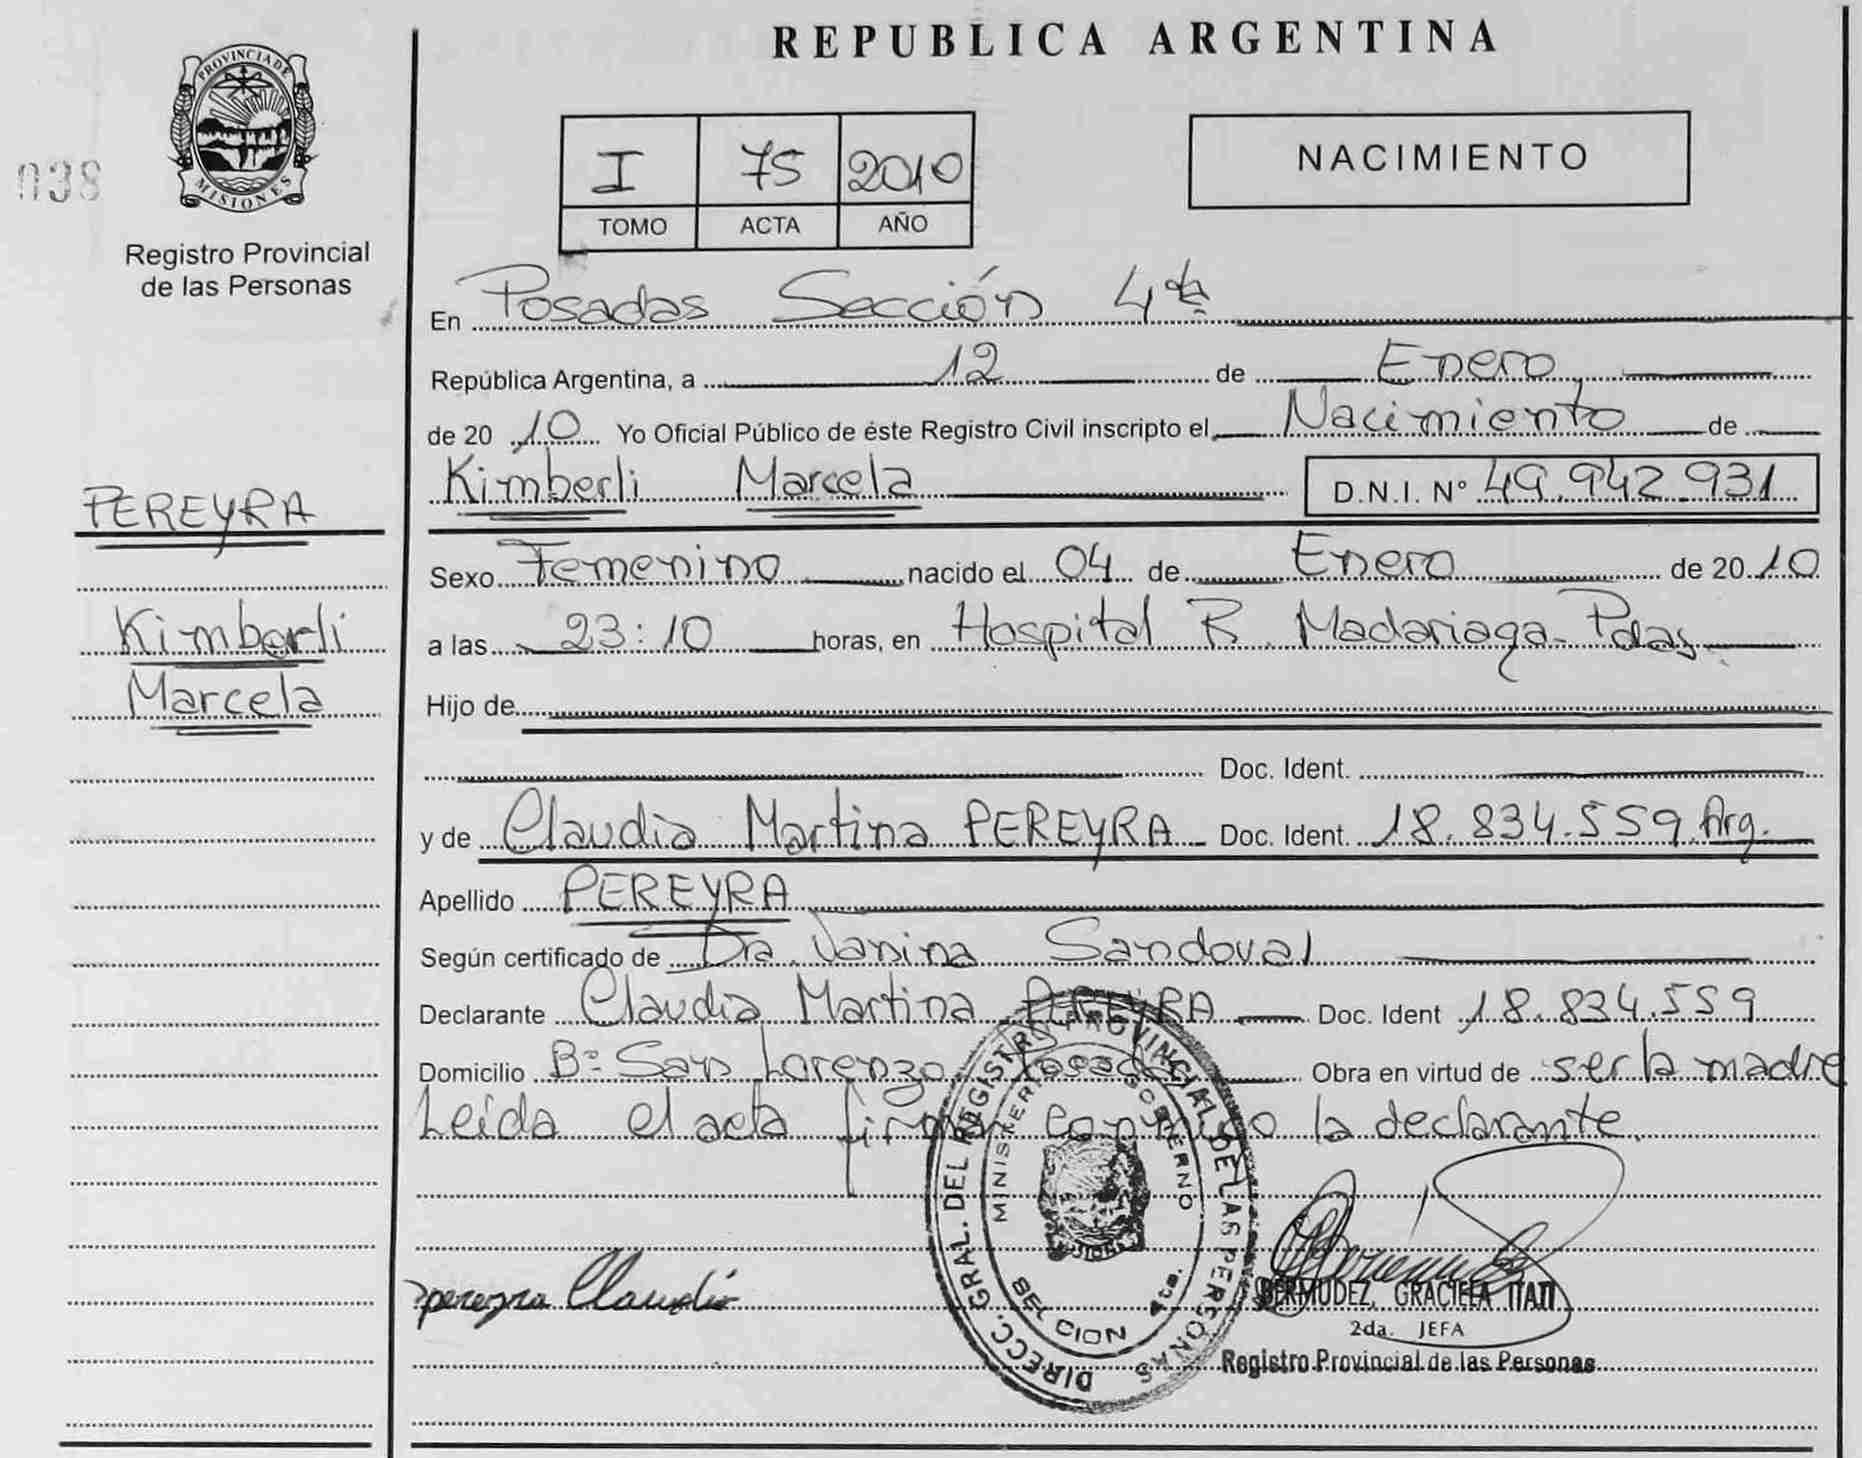 REPUBLICA ARGENTINA
PROVINCIA DE
MISIONES
038
Registro Provincial
de las Personas
I 75 2010
TOMO ACTA AÑO
NACIMIENTO
En Posadas Sección 4ta
República Argentina, a 12 de Enero
de 20 10 Yo Oficial Público de éste Registro Civil inscripto el Nacimiento de
Kimberli Marcela D.N.I. Nº 49.942.931
PEREYRA
Kimberli
Marcela
Sexo Femenino nacido el 04 de Enero de 20 10
a las 23:10 horas, en Hospital R. Madariaga-Pdas
Hijo de
Doc. Ident.
y de Claudia Martina PEREYRA Doc. Ident. 18.834.559 Arg.
Apellido PEREYRA
Según certificado de Dra. Sandoval
Declarante Claudia Martina PEREYRA Doc. Ident 18.834.559
Domicilio Bº San Lorenzo Posadas Obra en virtud de ser la madre
Leída el acta firma conmigo la declarante.
DIRECC. GRAL. DEL REGISTRO PROVINCIAL DE LAS PERSONAS
MINISTERIO GOBIERNO
4ta.
pereyra Claudia
BERMUDEZ, GRACIELA ITATI
2da. JEFA
Registro Provincial de las Personas